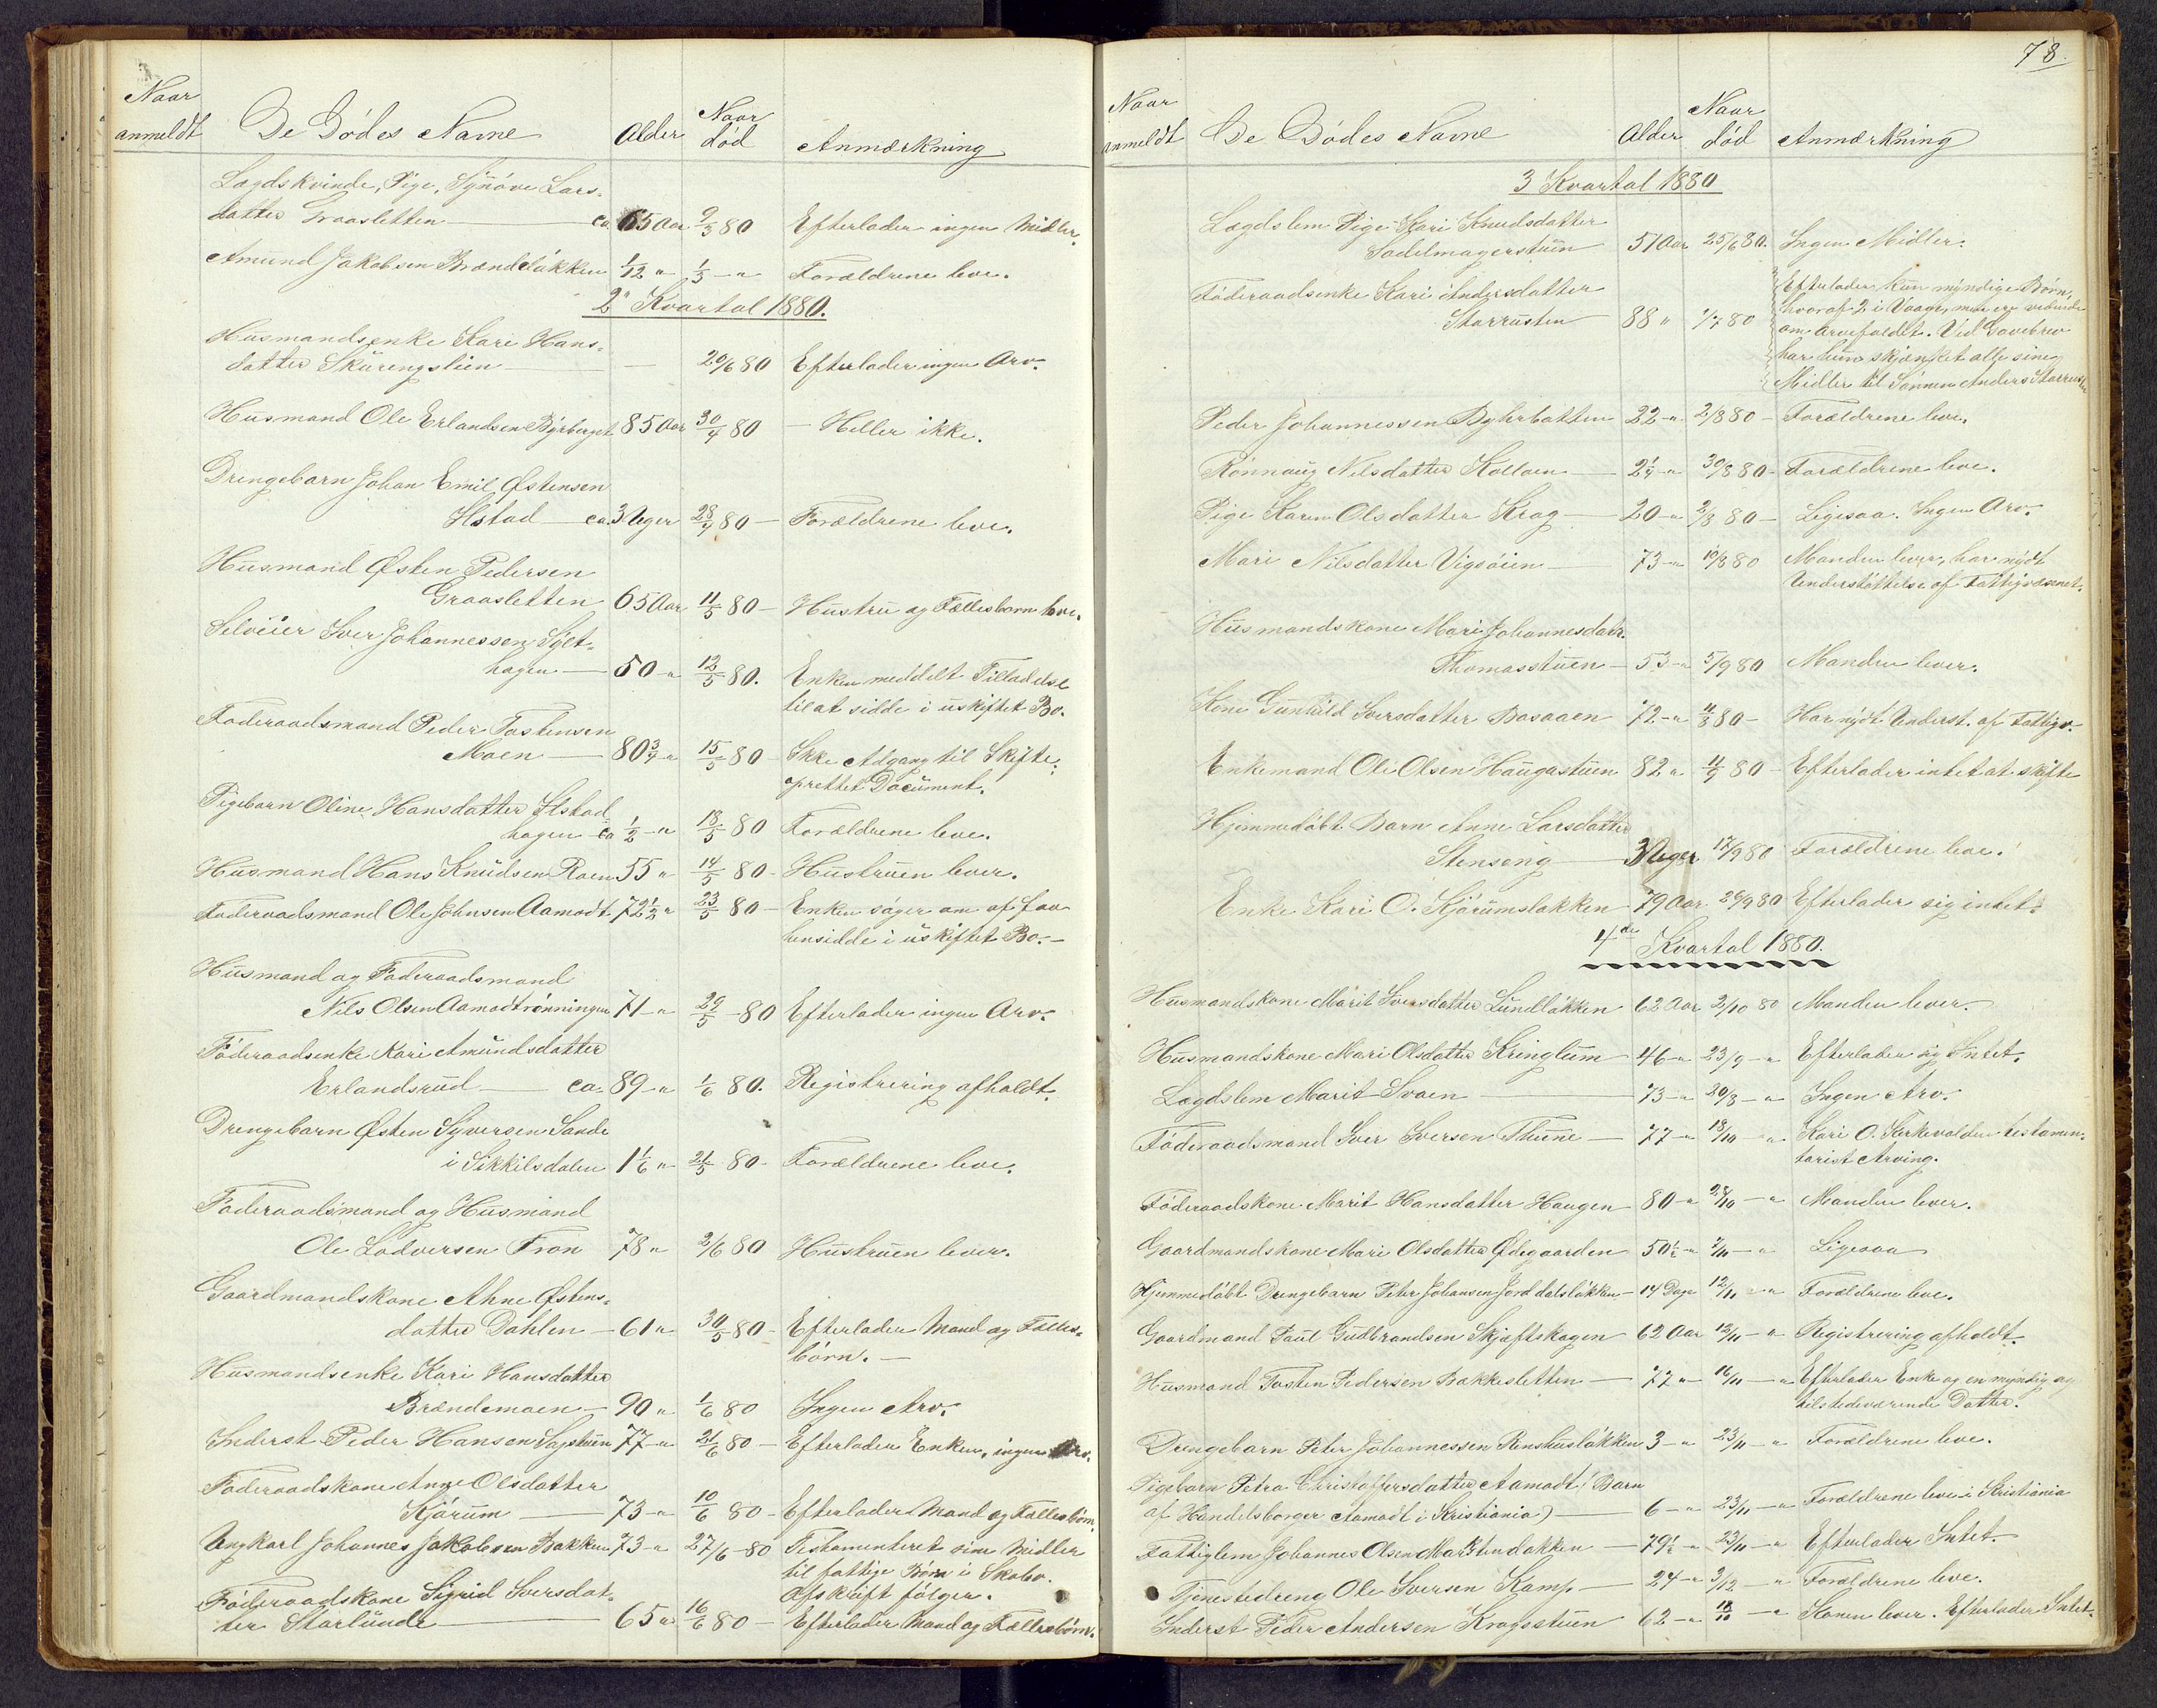 Naar
anmeldt De Dødes Navne Alder Naar død Anmærkning
Lægdskvinde, Pige, Synøve Lars-
datter Graasletten ca. 65 Aar 9/5 80 Efterlader ingen Midler.
Amund Jakobsen Brændeløkken 1/12 " 1/5 - " Forældrene leve.
2 Kvartal 1880.
Husmandsenke Kari Hans-
datter Skurengslien 20/6 80 Efterlader ingen Arv.
Husmand Ole Erlandsen Byrberget 85 Aar 30/4 80 - Heller ikke.
Drengebarn Johan Emil Østensen
Ilstad ca. 3 Uger 28/4 80 - Forældrene leve.
Husmand Østen Pedersen
Graasletten 65 Aar 11/5 80 - Hustru og Fællesbørn leve.
Selveier Iver Johannessen Sylt-
hagen 50 - " 12/5 80. Enken meddelt Tilladelse
til at sidde i uskiftet Bo.
Føderaadsmand Peder Tostensen
Moen 80 3/4 - " 15/5 80 - Ikke Adgang til Skifte;
oprettet Document.
Pigebarn Oline Hansdatter Ilstad-
hagen ca 1/2 - " 18/5 80 Forældrene leve.
Husmand Hans Knudsen Roen 55 " 14/5 80 - Hustruen lever.
Føderaadsmand Ole Johnsen Aamodt 72 1/2 " 23/5 80 - Enken søger om at faa
hensidde i uskiftet Bo. -
Husmand og Føderaadsmand
Nils Olsen Aamodtrønningen 71 - " 29/5 - 80 Efterlader ingen Arv.
Føderaadsenke Kari Amundsdatter
Erlandsrud ca. 89 - " 1/6 80. Registrering afholdt.
Drengebarn Østen Syversen Sande
i Sikkilsdalen 1 1/6 " 21/5 80 - Forældrene leve.
Føderaadsmand og Husmand
Ole Lodversen Fron 78 " 2/6 80 Hustruen lever.
Gaardmandskone Ahne Østens-
datter Dahlen - 61 " 30/5 80 - Efterlader Mand og Fælles-
børn. -
Husmandsenke Kari Hansdatter
Brændemoen - 90 " 1/6 80 Ingen Arv.
Inderst Peder Hansen Sagstuen 77 - " 21/6 80 - Efterlader Enken, ingen Arv.
Føderaadskone Anne Olsdatter
Kjørum 73 - " 10/6 80 - Efterlader Mand og Fællesbørn.
Ungkarl Johannes Jakobsen Bakken 73 - " 27/6 - 80 Testamenteret sine Midler
til fattige Børn i Skabo.
Afskrift følger.
Føderaadskone Sigrid Iversdat-
ter Storlunde 65 " 16/6 80 - Efterlader Mand og Fællesbørn.
78.
Naar
anmeldt De Dødes Navne Alder Naar død Anmærkning
3 Kvartal 1880
Lægdslem Pige Kari Knudsdatter
Sadelmagerstuen 51 Aar 25/6 80. Ingen Midler.
Føderaadsenke Kari Andersdatter
Storrusten 88 " 1/7 80 Efterlader kun myndige Børn,
hvoraf 2 i Vaage, men ere vidende
om Arvefaldet. Ved Gavebrev
har hun skjænket alle sine
Midler til Sønnen Anders Storrusten
Peder Johannessen Byhrbotten 22 - " 2/8 80 - Forældrene leve.
Rønnaug Nilsdatter Kolloen 2 1/4 - " 30/8 80 - Forældrene leve.
Pige Karen Olsdatter Krag 20 - " 2/8 80 - Ligesaa. Ingen Arv.
Mari Nilsdatter Vigsøien 73 - " 10/8 80 Manden lever, har nydt
Understøttelse af Fattigvæsenet.
Husmandskone Mari Johannesdatr.
Thomasstuen - 53 - " 5/9 80 Manden lever.
Kone Gunhild Iversdatter Basaaen 72 - " 11/8 80 - Har nydt Underst. af Fattigv.
Enkemand Ole Olsen Haugastuen 82 " 11/9 80 - Efterlader intet at skifte
Hjemmedøbt Barn Anne Larsdatter
Stenseng 3 Uger 17/9 80 Forældrene leve.
Enke Kari O. Kjørumsløkken 79 Aar 26/9 80 Efterlader sig intet.
4de Kvartal 1880.
Husmandskone Marit Iversdatter Lundløkken 62 Aar 2/10 80 Manden lever.
Husmandskone Mari Olsdatter Kringlum 46 - " 23/9 - " Efterlader sig Intet.
Lægdslem Marit Svaen 73 - " 20/8 - " Ingen Arv.
Føderaadsmand Iver Iversen Thune 77 - " 18/10 - " Kari O. Kirkevolden testamen-
tarisk Arving.
Føderaadskone Marit Hansdatter Haugen 80 - " 28/10 - " Manden lever.
Gaardmandskone Mari Olsdatter Ødegaarden 50 1/2 - " 7/11 - " Ligesaa
Hjemmedøbt Drengebarn Peter Johansen Jorddalsløkken - 14 Dage 12/11 - " Forældrene leve.
Gaardmand Paul Gudbrandsen Skjefthagen 62 Aar 12/11 - " Registrering afholdt.
Husmand Tosten Pedersen Bakkesletten 77 " 16/11 - " Efterlader Enke og en myndig og
tilstedeværende Datter.
Drengebarn Peter Johannessen Renshusløkken 3 - " 23/11 - " Forældrene leve.
Pigebarn Petra Christoffersdatter Aamodt (Barn
af Handelsborger Aamodt i Kristiania) 6 - " 23/11 - " Forældrene leve i Kristiania
Fattiglem Johannes Olsen 79 1/2 - " 23/11 - " Efterlader Intet.
Tjenestedreng Ole Iversen Kamp 24 - " 3/12 - " Forældrene leve.
Inderst Peder Andersen Kragsstuen 62 - " 18/10 - " Konen lever. Efterlader Intet.